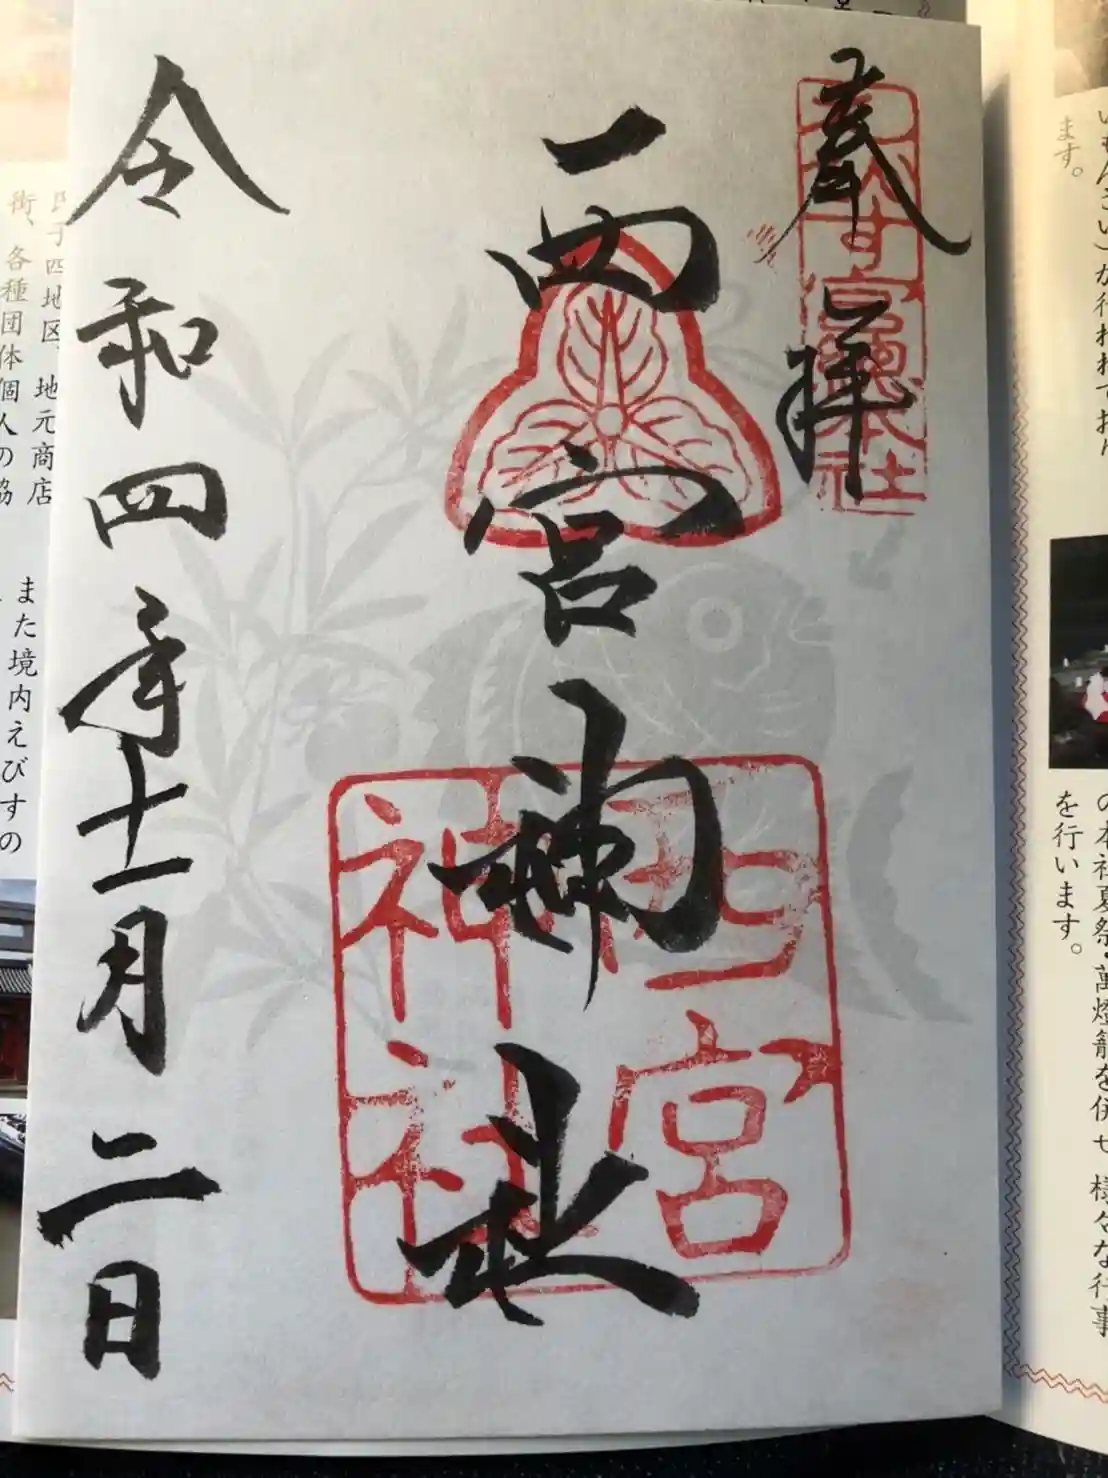 奉拝
えびす宮總本社
西宮神社
西宮
神社
令和四年十一月二日
ます。
いもんさい)が行われており
の本社夏祭・萬燈籠を併せ 様々な行事
を行います。
氏子四地区 地元商店
街、各種団体個人の協
また境内えびすの